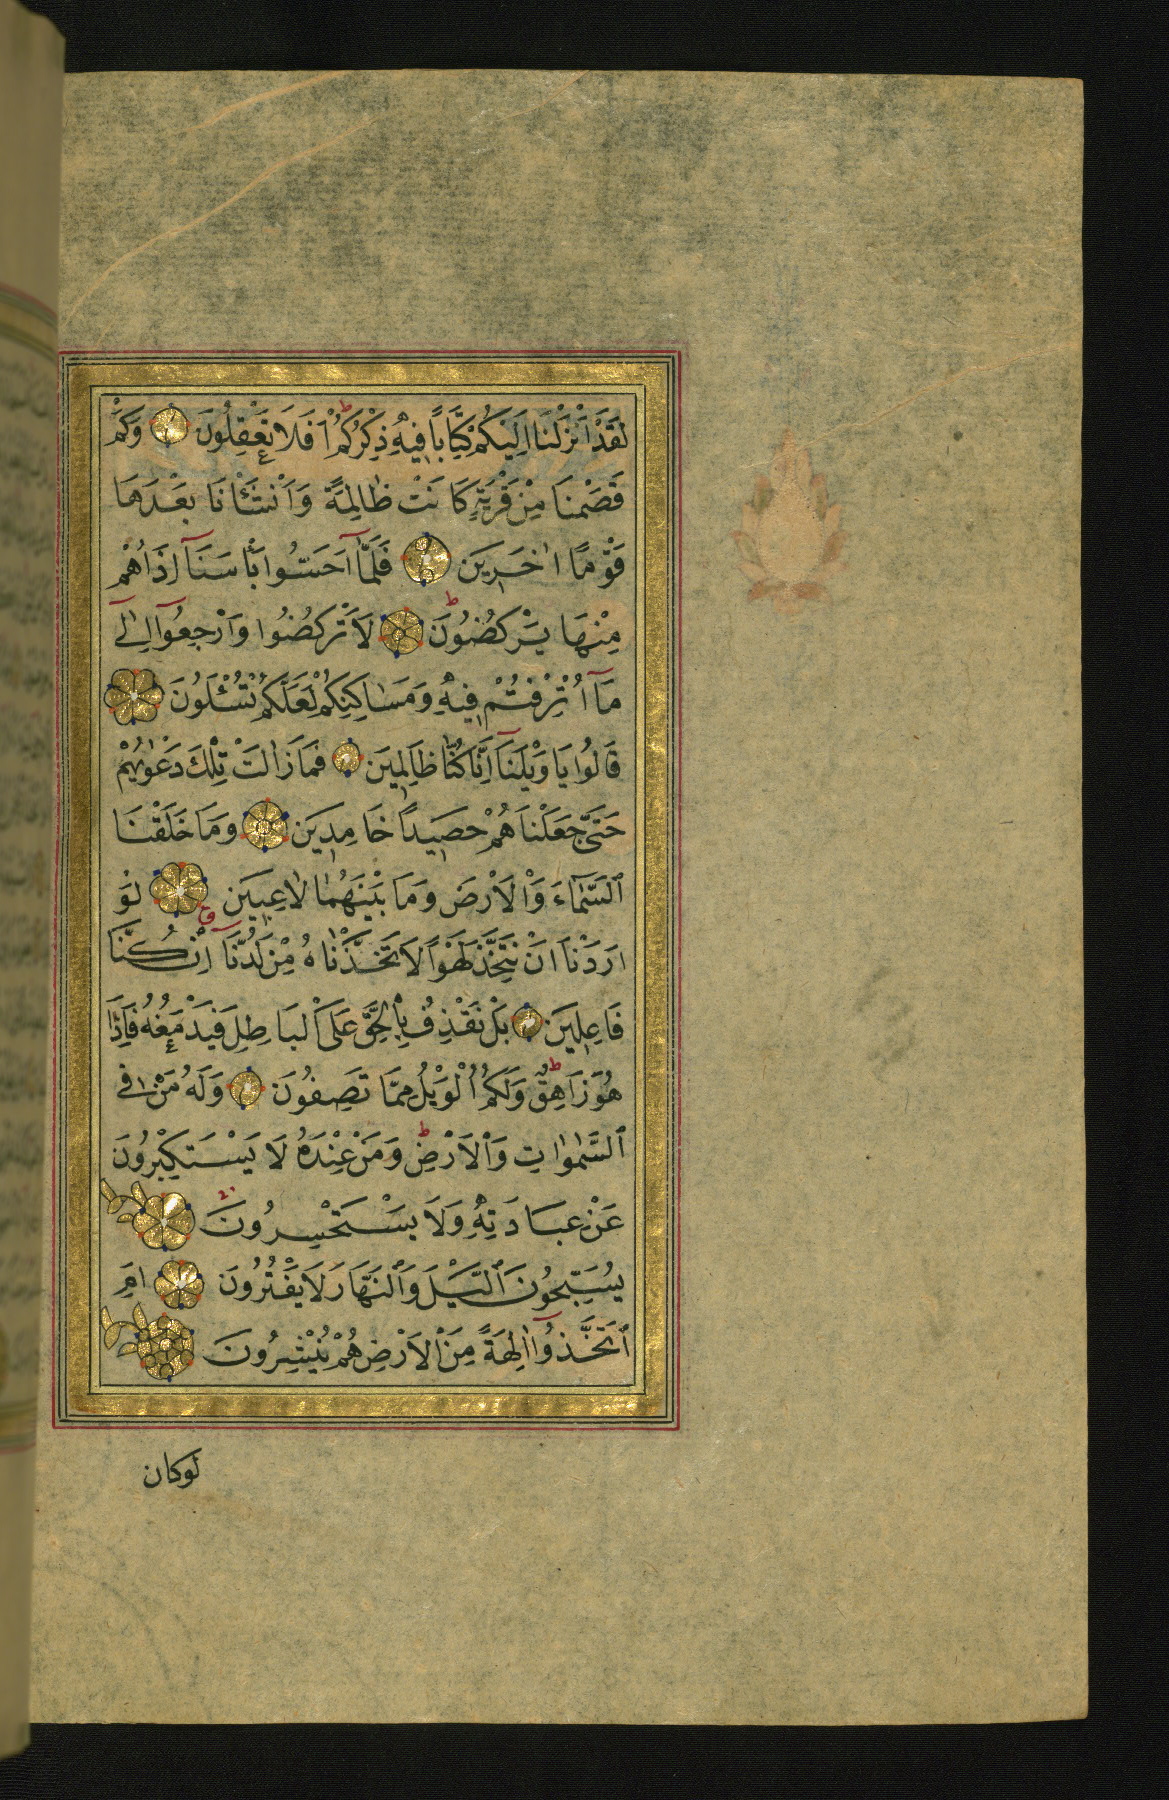 لَقَدْ اَنْزَلْنَا اِلَيْكُمْ كِتَابًا فِيهِ ذِكْرُكُمْ اَفَلَا تَعْقِلُونَ وَكَمْ
قَصَمْنَا مِنْ قَرْيَةٍ كَانَتْ ظَالِمَةً وَاَنْشَأْنَا بَعْدَهَا
قَوْمًا اٰخَرِينَ فَلَمَّٓا اَحَسُّوا بَأْسَنَٓا اِذَا هُمْ
مِنْهَا يَرْكُضُونَ لَا تَرْكُضُوا وَارْجِعُٓوا اِلٰى
مَٓا اُتْرِفْتُمْ فِيهِ وَمَسَاكِنِكُمْ لَعَلَّكُمْ تُسْـَٔلُونَ
قَالُوا يَا وَيْلَنَٓا اِنَّا كُنَّا ظَالِمِينَ فَمَا زَالَتْ تِلْكَ دَعْوٰيهُمْ
حَتّٰى جَعَلْنَاهُمْ حَصِيدًا خَامِدِينَ وَمَا خَلَقْنَا
ٱلسَّمَٓاءَ وَٱلْاَرْضَ وَمَا بَيْنَهُمَا لَاعِبِينَ لَوْ
اَرَدْنَا اَنْ نَتَّخِذَ لَهْوًا لَاتَّخَذْنَاهُ مِنْ لَدُنَّٓا اِنْ كُنَّا
فَاعِلِينَ بَلْ نَقْذِفُ بِٱلْحَقِّ عَلَى ٱلْبَاطِلِ فَيَدْمَغُهُ فَاِذَا
هُوَ زَاهِقٌ وَلَكُمُ ٱلْوَيْلُ مِمَّا تَصِفُونَ وَلَهُ مَنْ فِى
ٱلسَّمٰوَاتِ وَٱلْاَرْضِ وَمَنْ عِنْدَهُ لَا يَسْتَكْبِرُونَ
عَنْ عِبَادَتِهِ وَلَا يَسْتَحْسِرُونَ
يُسَبِّحُونَ ٱلَّيْلَ وَٱلنَّهَارَ لَا يَفْتُرُونَ اَمِ
ٱتَّخَذُٓوا اٰلِهَةً مِنَ ٱلْاَرْضِ هُمْ يُنْشِرُونَ
لوكان